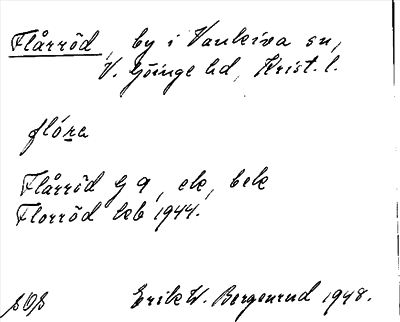 Flårröd, by i Vankiva sn,
V. Göinge hd, Krist. l.
flóra
Flårröd G 9, ek, bek
Florröd keb 1944.
sOs Erik W. Bergenrud 1948.